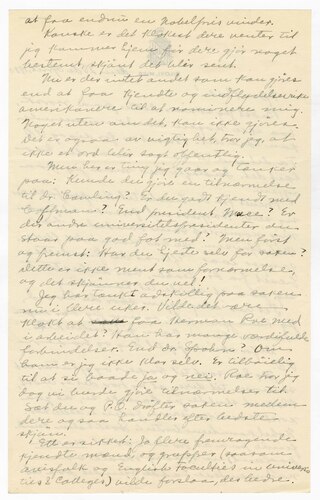 at faa endnu en Nobelpris vinder.
Kanske er det klokest dere venter til
jeg kommer hjem før dere gjör noget
bestemt, skjönt det blir sent.
Nu er der intet andet som kan gjöres
end at faa kjendte og indflydelsesrike
amerikanere til at nominere mig.
Noget uten om det kan ikke gjöres.
Det er ogsaa av vigtighet, tror jeg, at
ikke et ord blir sagt offentlig.
Men her er ting jeg gaar og tænker
paa: Kunde du gjöre en tilnærmelse
til Dr. Cowling? Er du godt kjendt med
Coffmann? End president ? Er
der andre universitetspresidenter du
staar paa god fot med? Men först
og fremst: Har du hjerte selv for saken?
Dette er ikke ment som fornærmelse,
og det skjönner du vel!
Jeg har tænkt adskillig paa saken
nu i flere uker. Vilde det være
klokt at faa Herman Roe med
i arbeidet? Han har mange værdifulde
forbindelser. End Dr. ? Om
ham er jeg ikke klar selv. Er tilböielig
til at si baade ja og nei. Roe tror jeg
dog vi burde gjöre tilnærmelser til.
Sæt du og P.O. dröfter saken mellem
dere og saa handler efter bedste
skjön.
Ett er sikkert: Jo flere fremragende
kjendte mænd og grupper (saasom
avisfolk og English Faculties in univer-
ties & Colleges) vilde forslaa, des bedre.